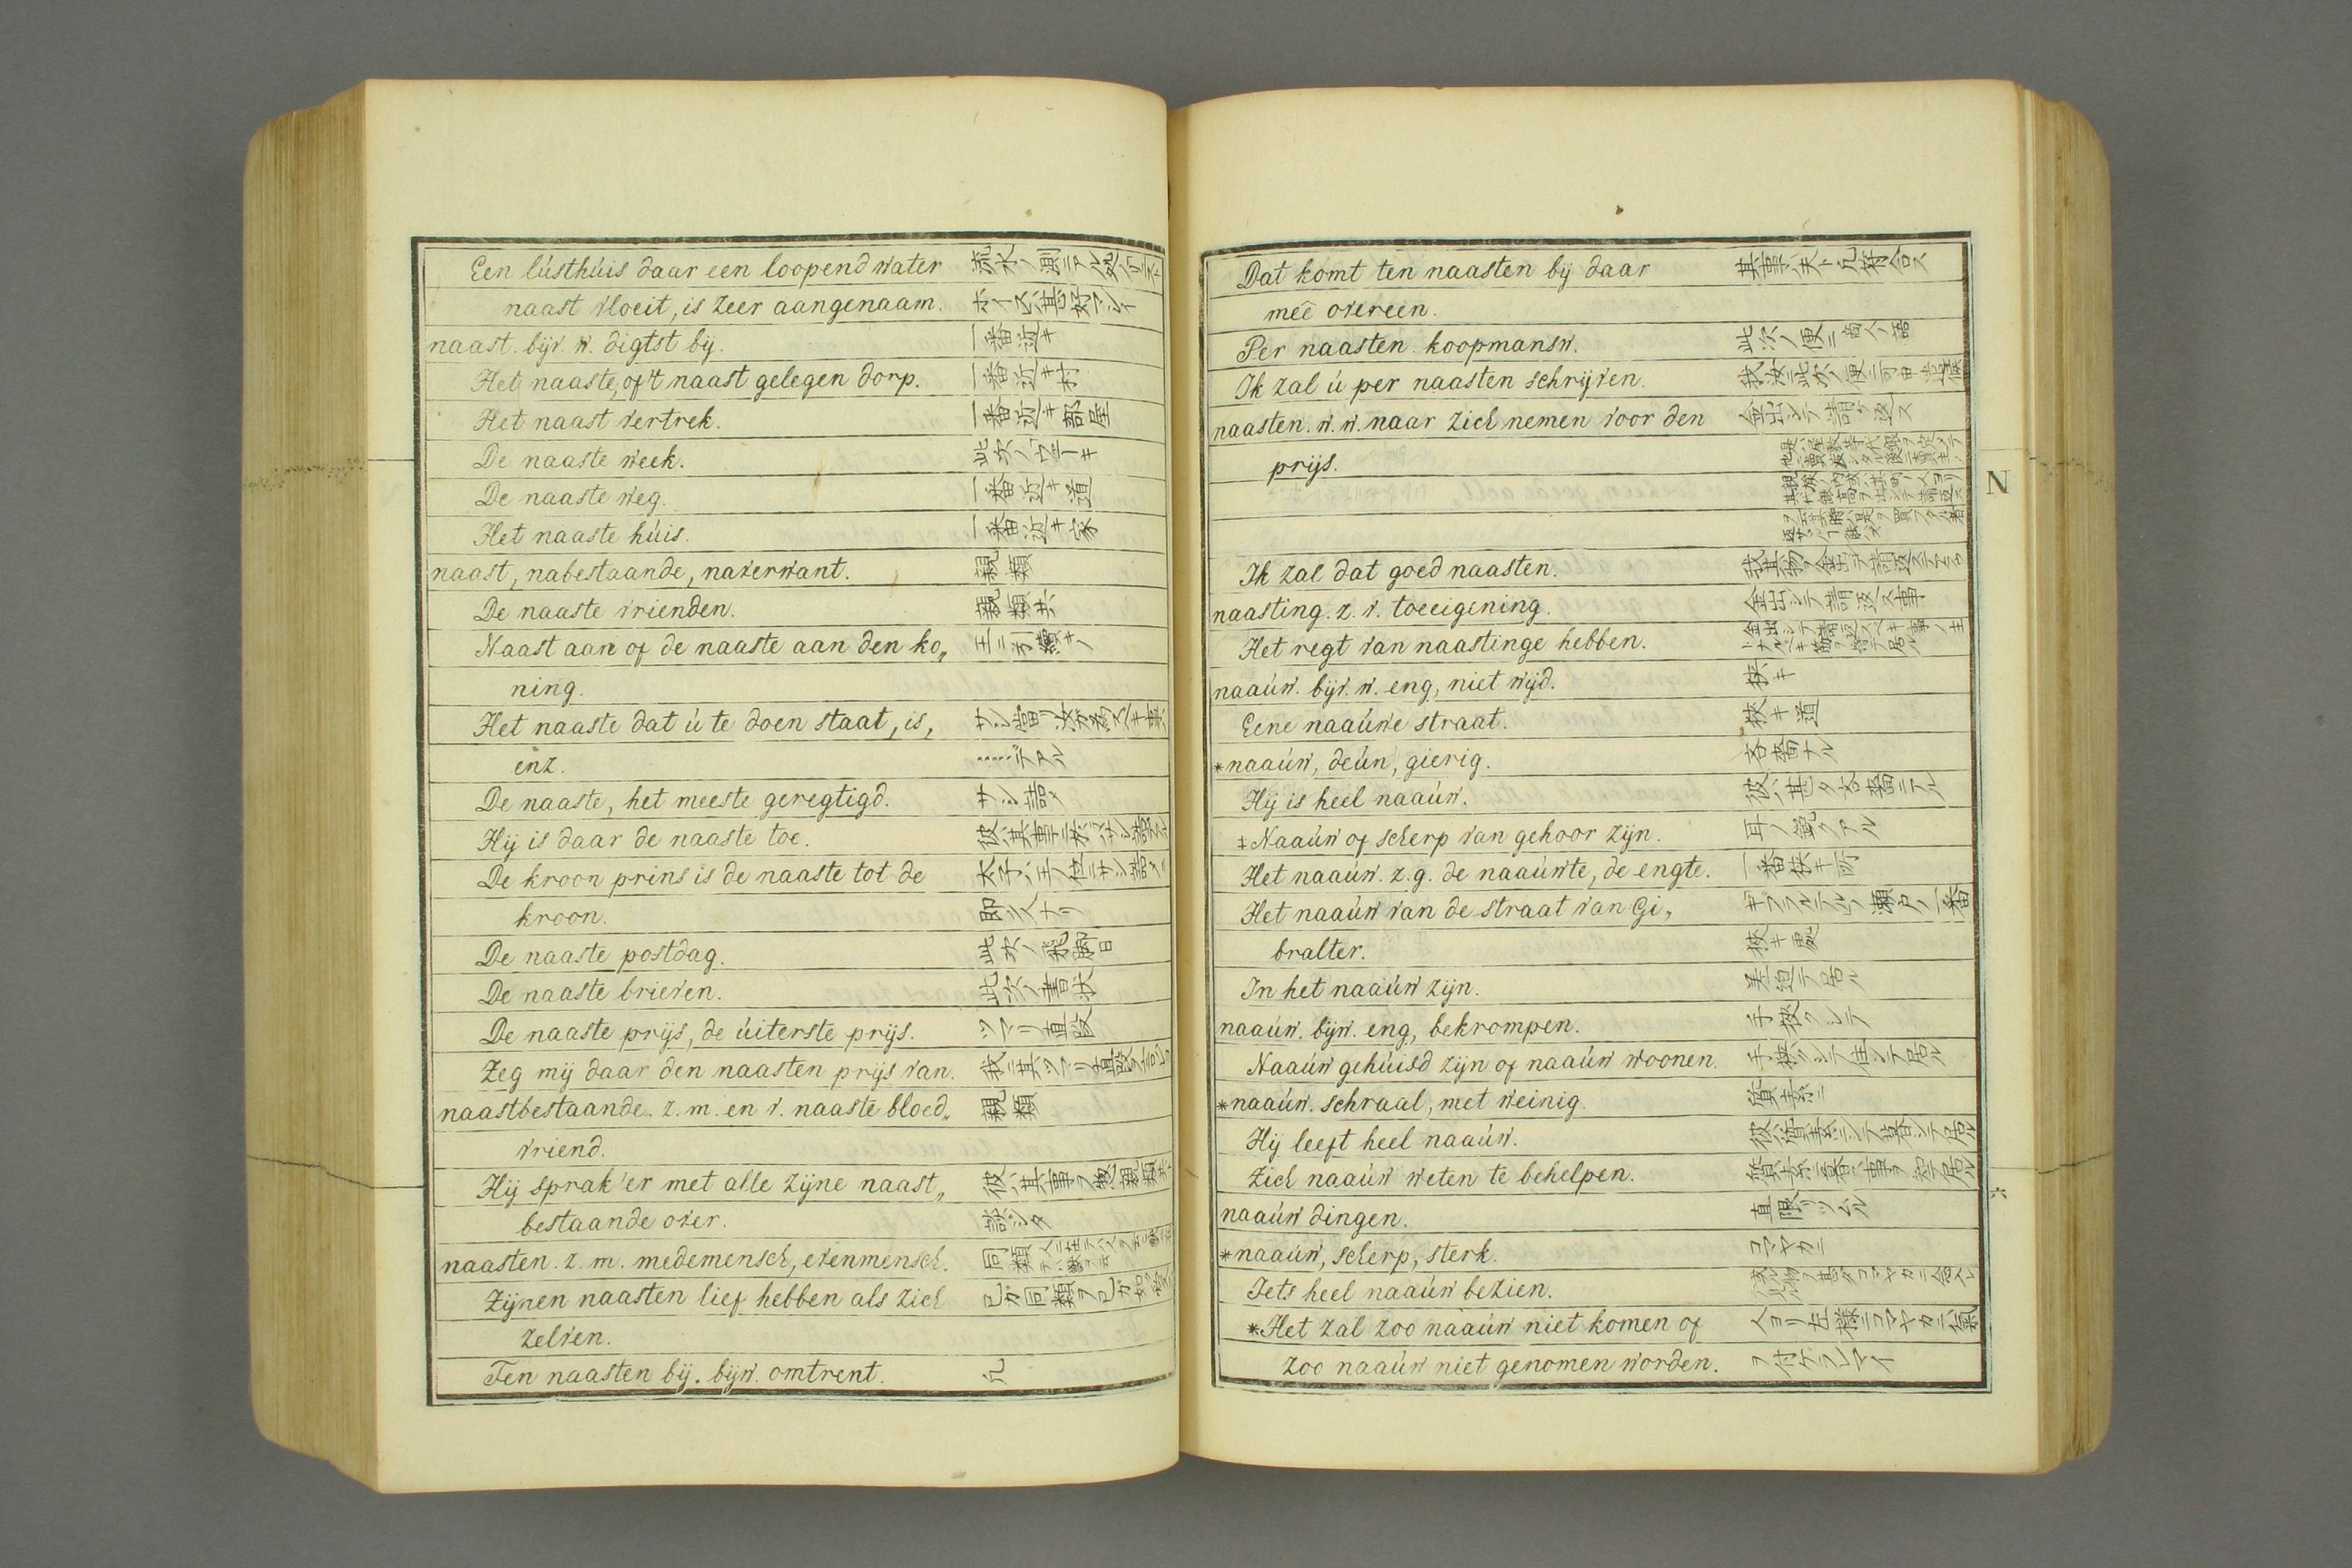 Een lústhúis daar een loopend water 流水ノ測ニアル処ノリュスト
naast vloeit, is zeer aangenaam. ホイスハ甚好マシイ
naast. bijv. w. digtst bij. 一番近キ
Het naaste, of't naast gelegen dorp. 一番近キ村
Het naast vertrek. 一番近キ部屋
De naaste week. 此次ノウエーキ
De naaste weg. 一番近キ道
Het naaste húis. 一番近キ家
naast, nabestaande, naverwant. 親類
De naaste vrienden. 親類共
Naast aan of de naaste aan den ko„ 王ニ引續キノ
ning.
Het naaste dat ú te doen staat, is,
enz. ……デアル
De naaste, het meeste geregtigd.
Hij is daar de naaste toe.
De kroon prins is de naaste tot de
kroon. 即久ナリ
De naaste postdag. 此次ノ飛脚日
De naaste brieven. 此次ノ書状
De naaste prijs, de úiterste prijs. ツマリ直段
Zeg mij daar den naasten prijs van. 我ニ其ツマリ直段ヲ言へ
naastbestaande. z. m. en v. naaste bloed„ 親類
vriend.
Hij sprak 'er met alle zijne naast„ 彼ハ其事ヲ惣親類共ト
bestaande over. 談シタ
naasten. z. m. medemensch, evenmensch. 同類
Zijnen naasten lief hebben als zich 己ガ同類ヲ己ガ如ク愛ス
zelven.
Ten naasten bij. bijw. omtrent. 凡
Dat komt ten naasten bij daar 其事ハ夫ト凡符合ス
meê overeen.
Per naasten. koopmansw. 此次ノ便ニ 商人ノ語
Ik zal ú per naasten schrijven. 我汝ニ此次ノ便ニ可申遣候
naasten. w. w. naar zich nemen voor den 金出シテ請ケ返ス
prijs.
N
Ik zal dat goed naasten.
naasting. z. v. toeeigening. 金出シテ請返ス事
Het regt van naastinge hebben.
naaúw. bijv. w. eng, niet wijd. 狹キ
Eene naaúwe straat. 狹キ道
*naaúw, deún, gierig. 吝嗇ナル
Hij is heel naaúw. 彼ハ甚タ吝嗇ニアル
‡Naaúw of scherp van gehoor zijn. 耳ノ鋭クアル
Het naaúw. z. g. de naaúwte, de engte. 一番狹キ所
Het naaúw van de straat van Gi„ ギブラルテルノ瀬戸ノ一番
bralter. 狹キ処
In het naaúw zijn. 差迫テ居ル
naaúw. bijw. eng, bekrompen. 手狹クシテ
Naaúw gehúisd zijn of naaúw woonen. 手狹クシテ住シテ居ル
*naaúw. schraal, met weinig. 質素ニ
Hij leeft heel naaúw. 彼ハ質素ニシテ暮シテ居ル
Zich naaúw weten te behelpen. 質素ニ暮ス事ヲ
naaúw dingen. 直限リツムル
*naaúw, scherp, sterk. コマヤカニ
Iets heel naaúw bezien.
*Het zal zoo naaúw niet komen of 人ヨリ左様ニコマヤカニ氣
zoo naaúw niet genomen worden. ヲ付ケラレマイ